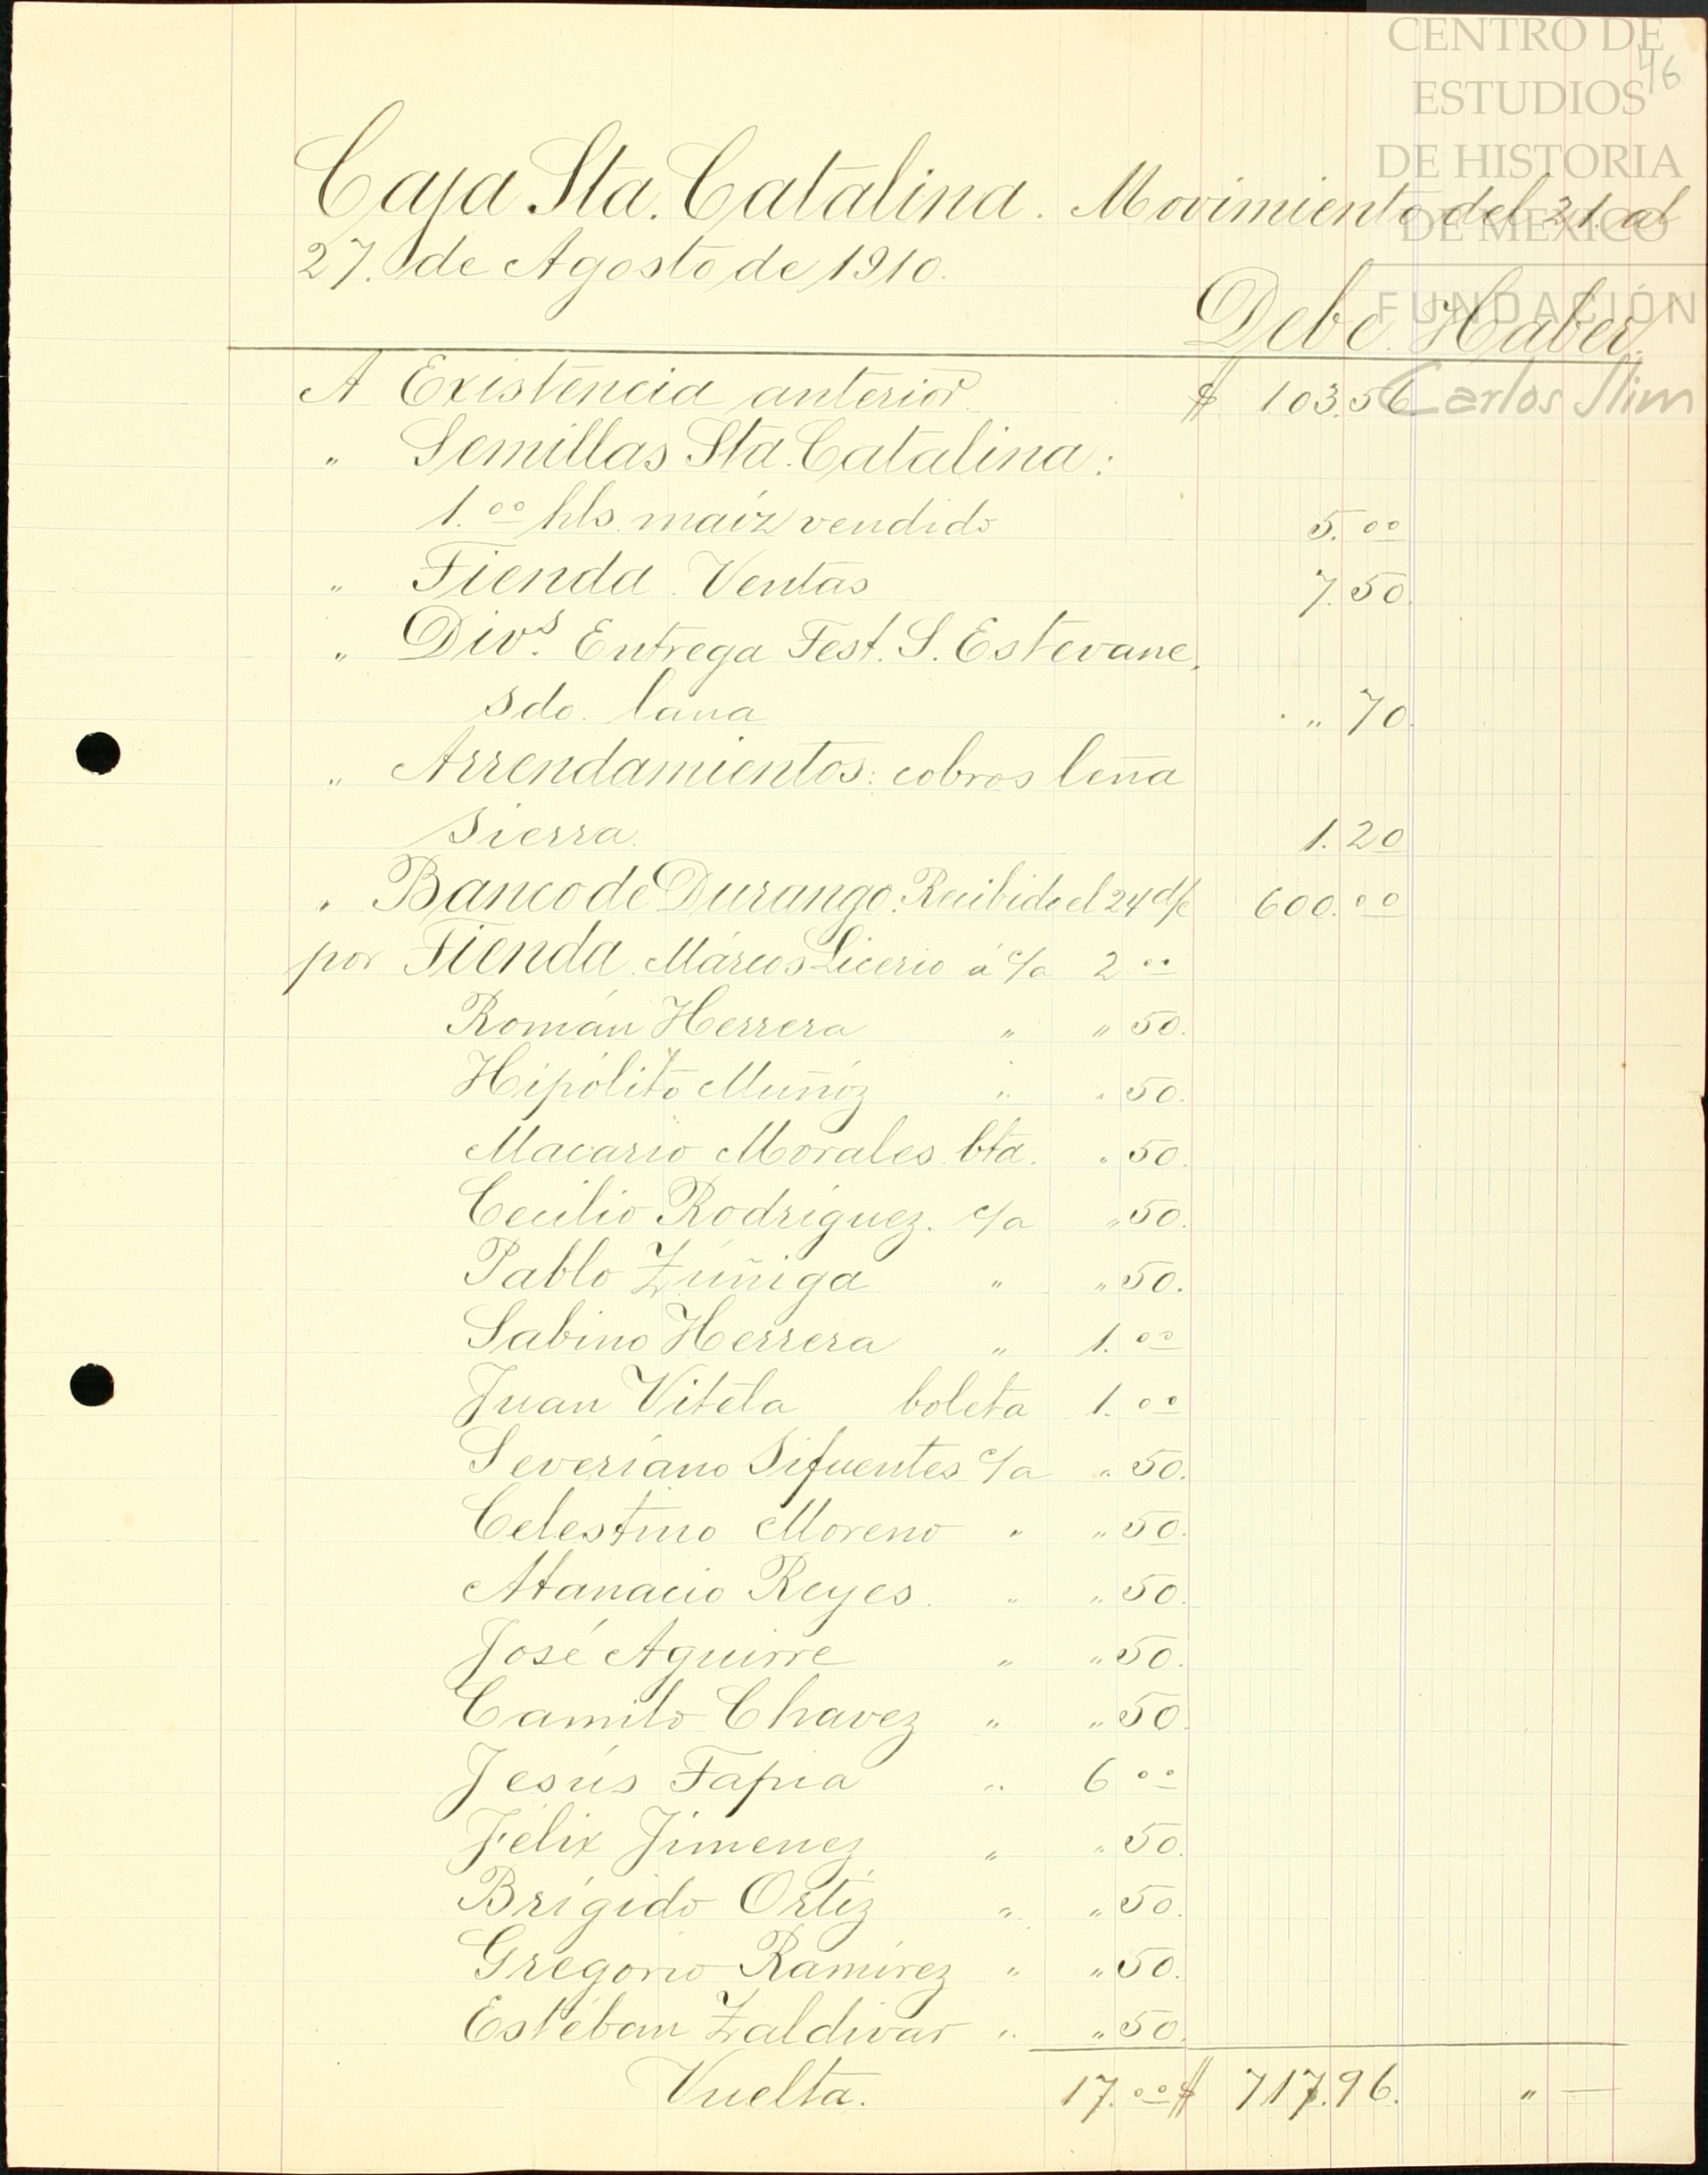 CENTRO DE
ESTUDIOS
DE HISTORIA
DE MEXICO
FUNDACIÓN
Carlos Slim
46
Caja Sta. Catalina. Movimiento del 21. al
27. de Agosto de 1910.
Debe. Haber.
A Existencia anterior. $ 103.56
" Semillas Sta. Catalina:
1.00 hls. maíz vendido 5.00
" Tienda. Ventas 7.50.
" Divs. Entrega Test. S. Estevane,
sdo. lana " 70.
" Arrendamientos: cobros leña
Sierra. 1.20
" Banco de Durango. Recibido el 24 d/c 600.00
por Tienda. Márcos Licerio á c/a 2.00
Román Herrera " " 50.
Hipólito Muñóz " " 50.
Macario Morales bta. " 50.
Cecilio Rodríguez. c/a " 50.
Pablo Zúñiga " " 50.
Sabino Herrera " 1.00
Juan Vitela boleta 1.00
Severiano Sifuentes c/a " 50.
Celestino Moreno " " 50.
Atanacio Reyes. " " 50.
José Aguirre " " 50.
Camilo Chavez " " 50.
Jesús Tapia " 6 00
Félix Jimenez " " 50.
Brígido Ortíz " " 50.
Gregorio Ramírez " " 50.
Estéban Zaldivar " " 50.
Vuelta. 17.00 $ 717.96. " —